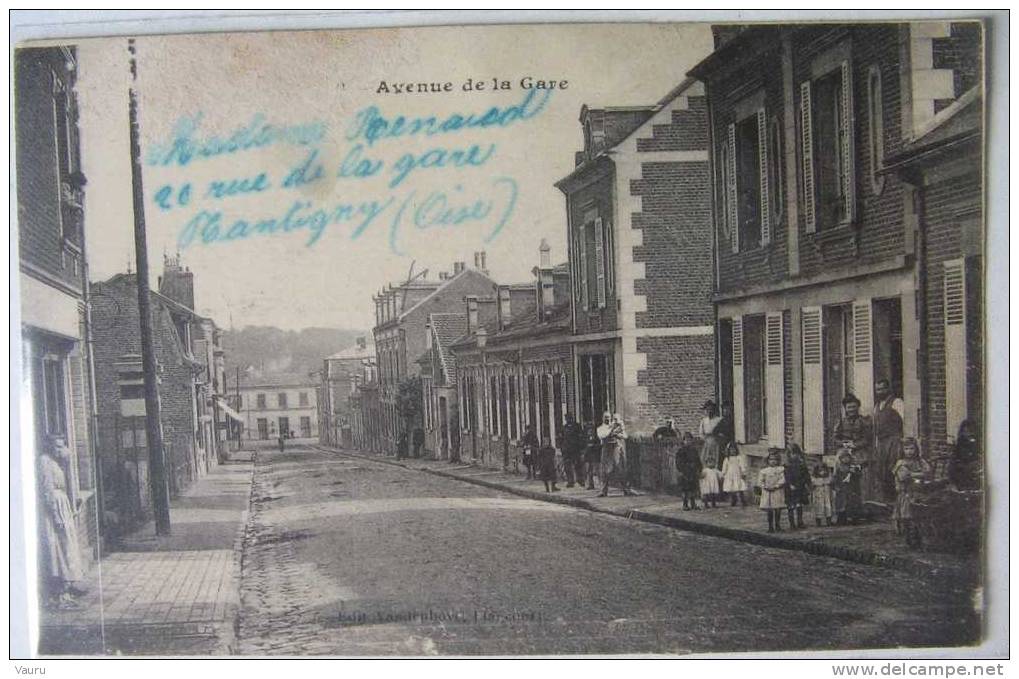 Avenue de la Gare
Madame Renard
20 rue de la gare
Nantigny (Oise)
Edit. Vandenhove,
Vauru
www.delcampe.net